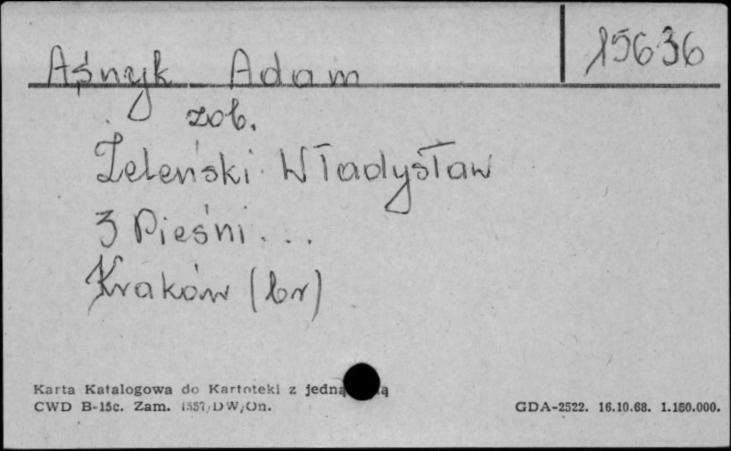 15636
Aśnyk Adam
zob.
Żeleński Władysław
3 Pieśni...
Kraków (br)
Karta Katalogowa do Kartoteki z jedną
CWD B-15c. Zam. 1557/DW/On.
GDA-2522. 16.10.68. 1.150.000.